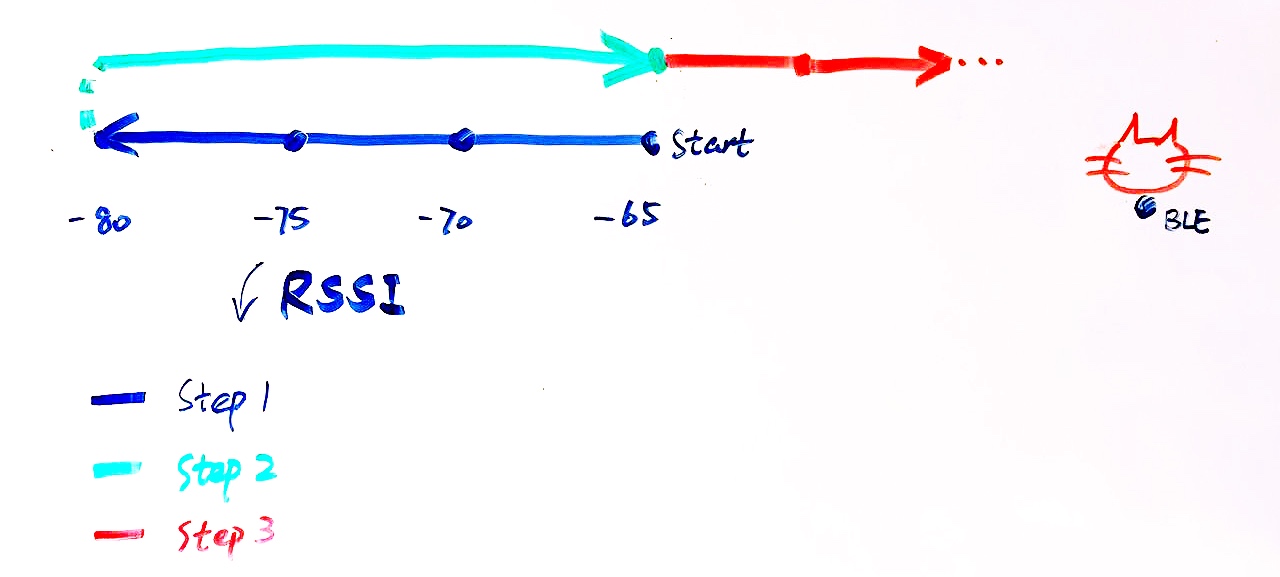 Start
-80 -75 -70 -65
BLE
RSSI
Step 1
Step 2
Step 3